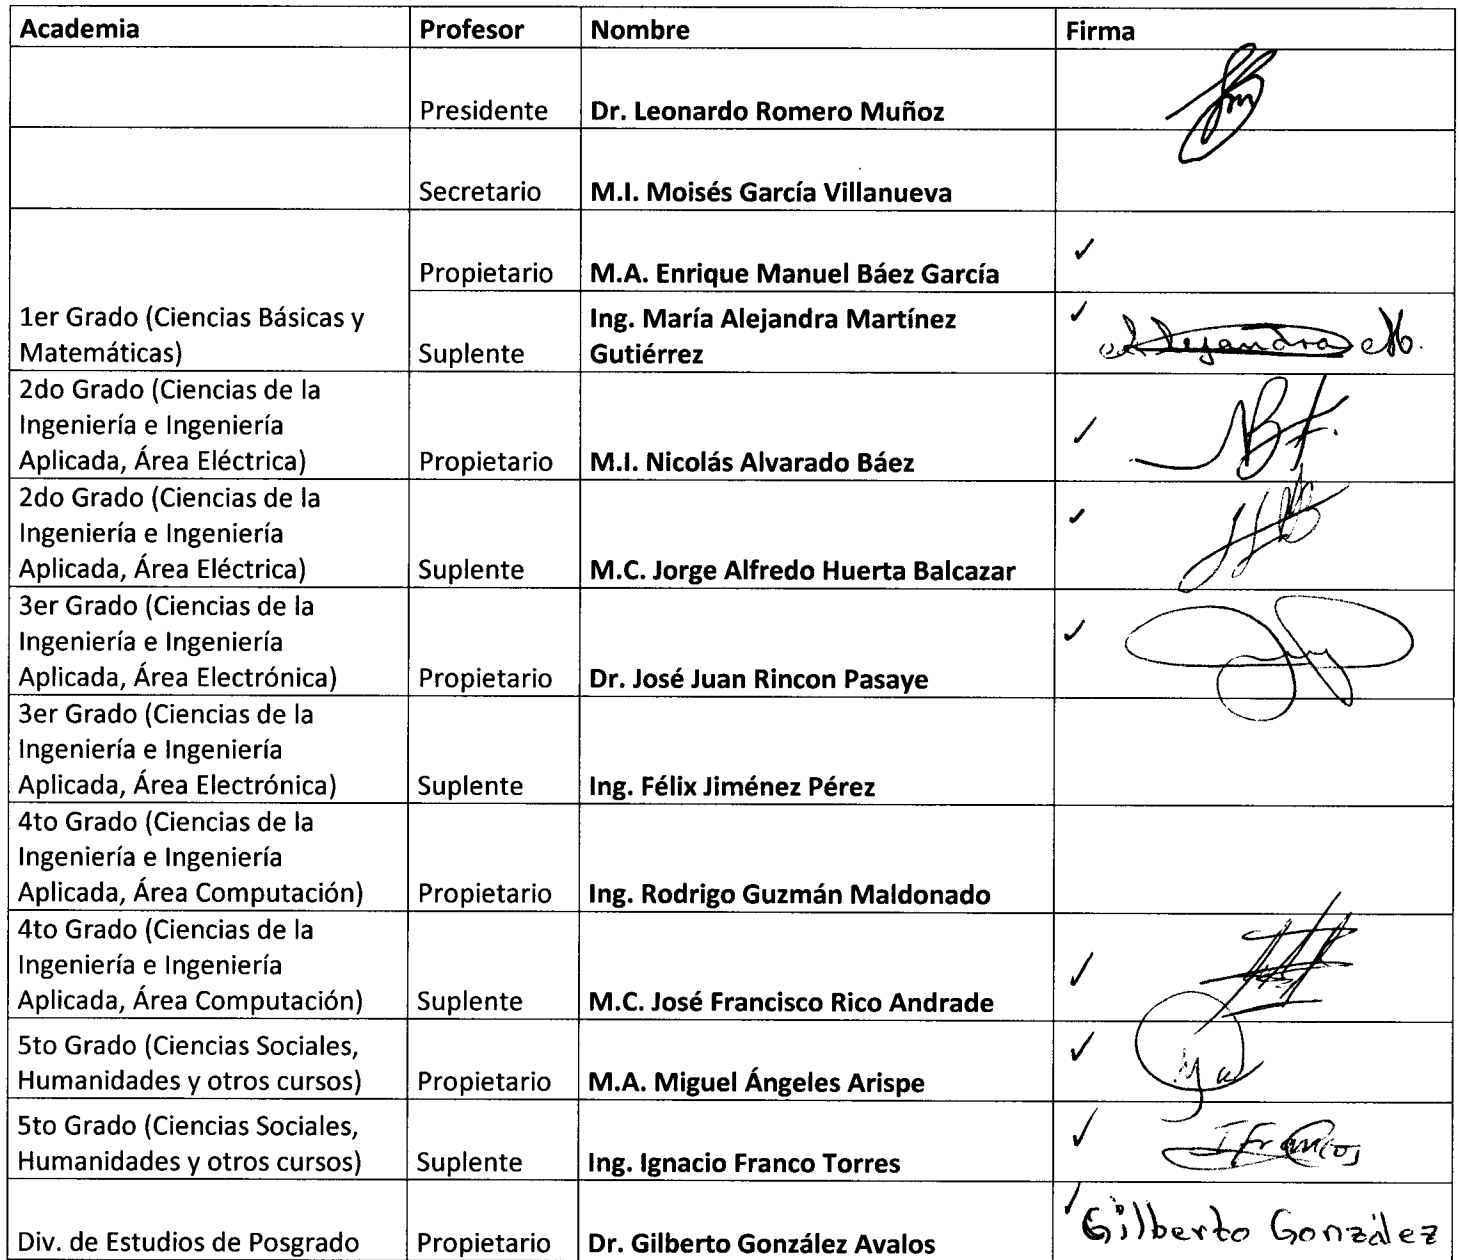 Academia Profesor Nombre Firma
Presidente Dr. Leonardo Romero Muñoz
Secretario M.I. Moisés García Villanueva
Propietario M.A. Enrique Manuel Báez García ✓
1er Grado (Ciencias Básicas y
Matemáticas)
Suplente
Ing. María Alejandra Martínez
Gutiérrez
✓ Alejandra M.
2do Grado (Ciencias de la
Ingeniería e Ingeniería
Aplicada, Área Eléctrica) Propietario M.I. Nicolás Alvarado Báez ✓
2do Grado (Ciencias de la
Ingeniería e Ingeniería
Aplicada, Área Eléctrica) Suplente M.C. Jorge Alfredo Huerta Balcazar ✓
3er Grado (Ciencias de la
Ingeniería e Ingeniería
Aplicada, Área Electrónica) Propietario Dr. José Juan Rincon Pasaye ✓
3er Grado (Ciencias de la
Ingeniería e Ingeniería
Aplicada, Área Electrónica) Suplente Ing. Félix Jiménez Pérez
4to Grado (Ciencias de la
Ingeniería e Ingeniería
Aplicada, Área Computación) Propietario Ing. Rodrigo Guzmán Maldonado
4to Grado (Ciencias de la
Ingeniería e Ingeniería
Aplicada, Área Computación) Suplente M.C. José Francisco Rico Andrade ✓
5to Grado (Ciencias Sociales,
Humanidades y otros cursos) Propietario M.A. Miguel Ángeles Arispe ✓
5to Grado (Ciencias Sociales,
Humanidades y otros cursos) Suplente Ing. Ignacio Franco Torres ✓
Div. de Estudios de Posgrado Propietario Dr. Gilberto González Avalos ✓ Gilberto González